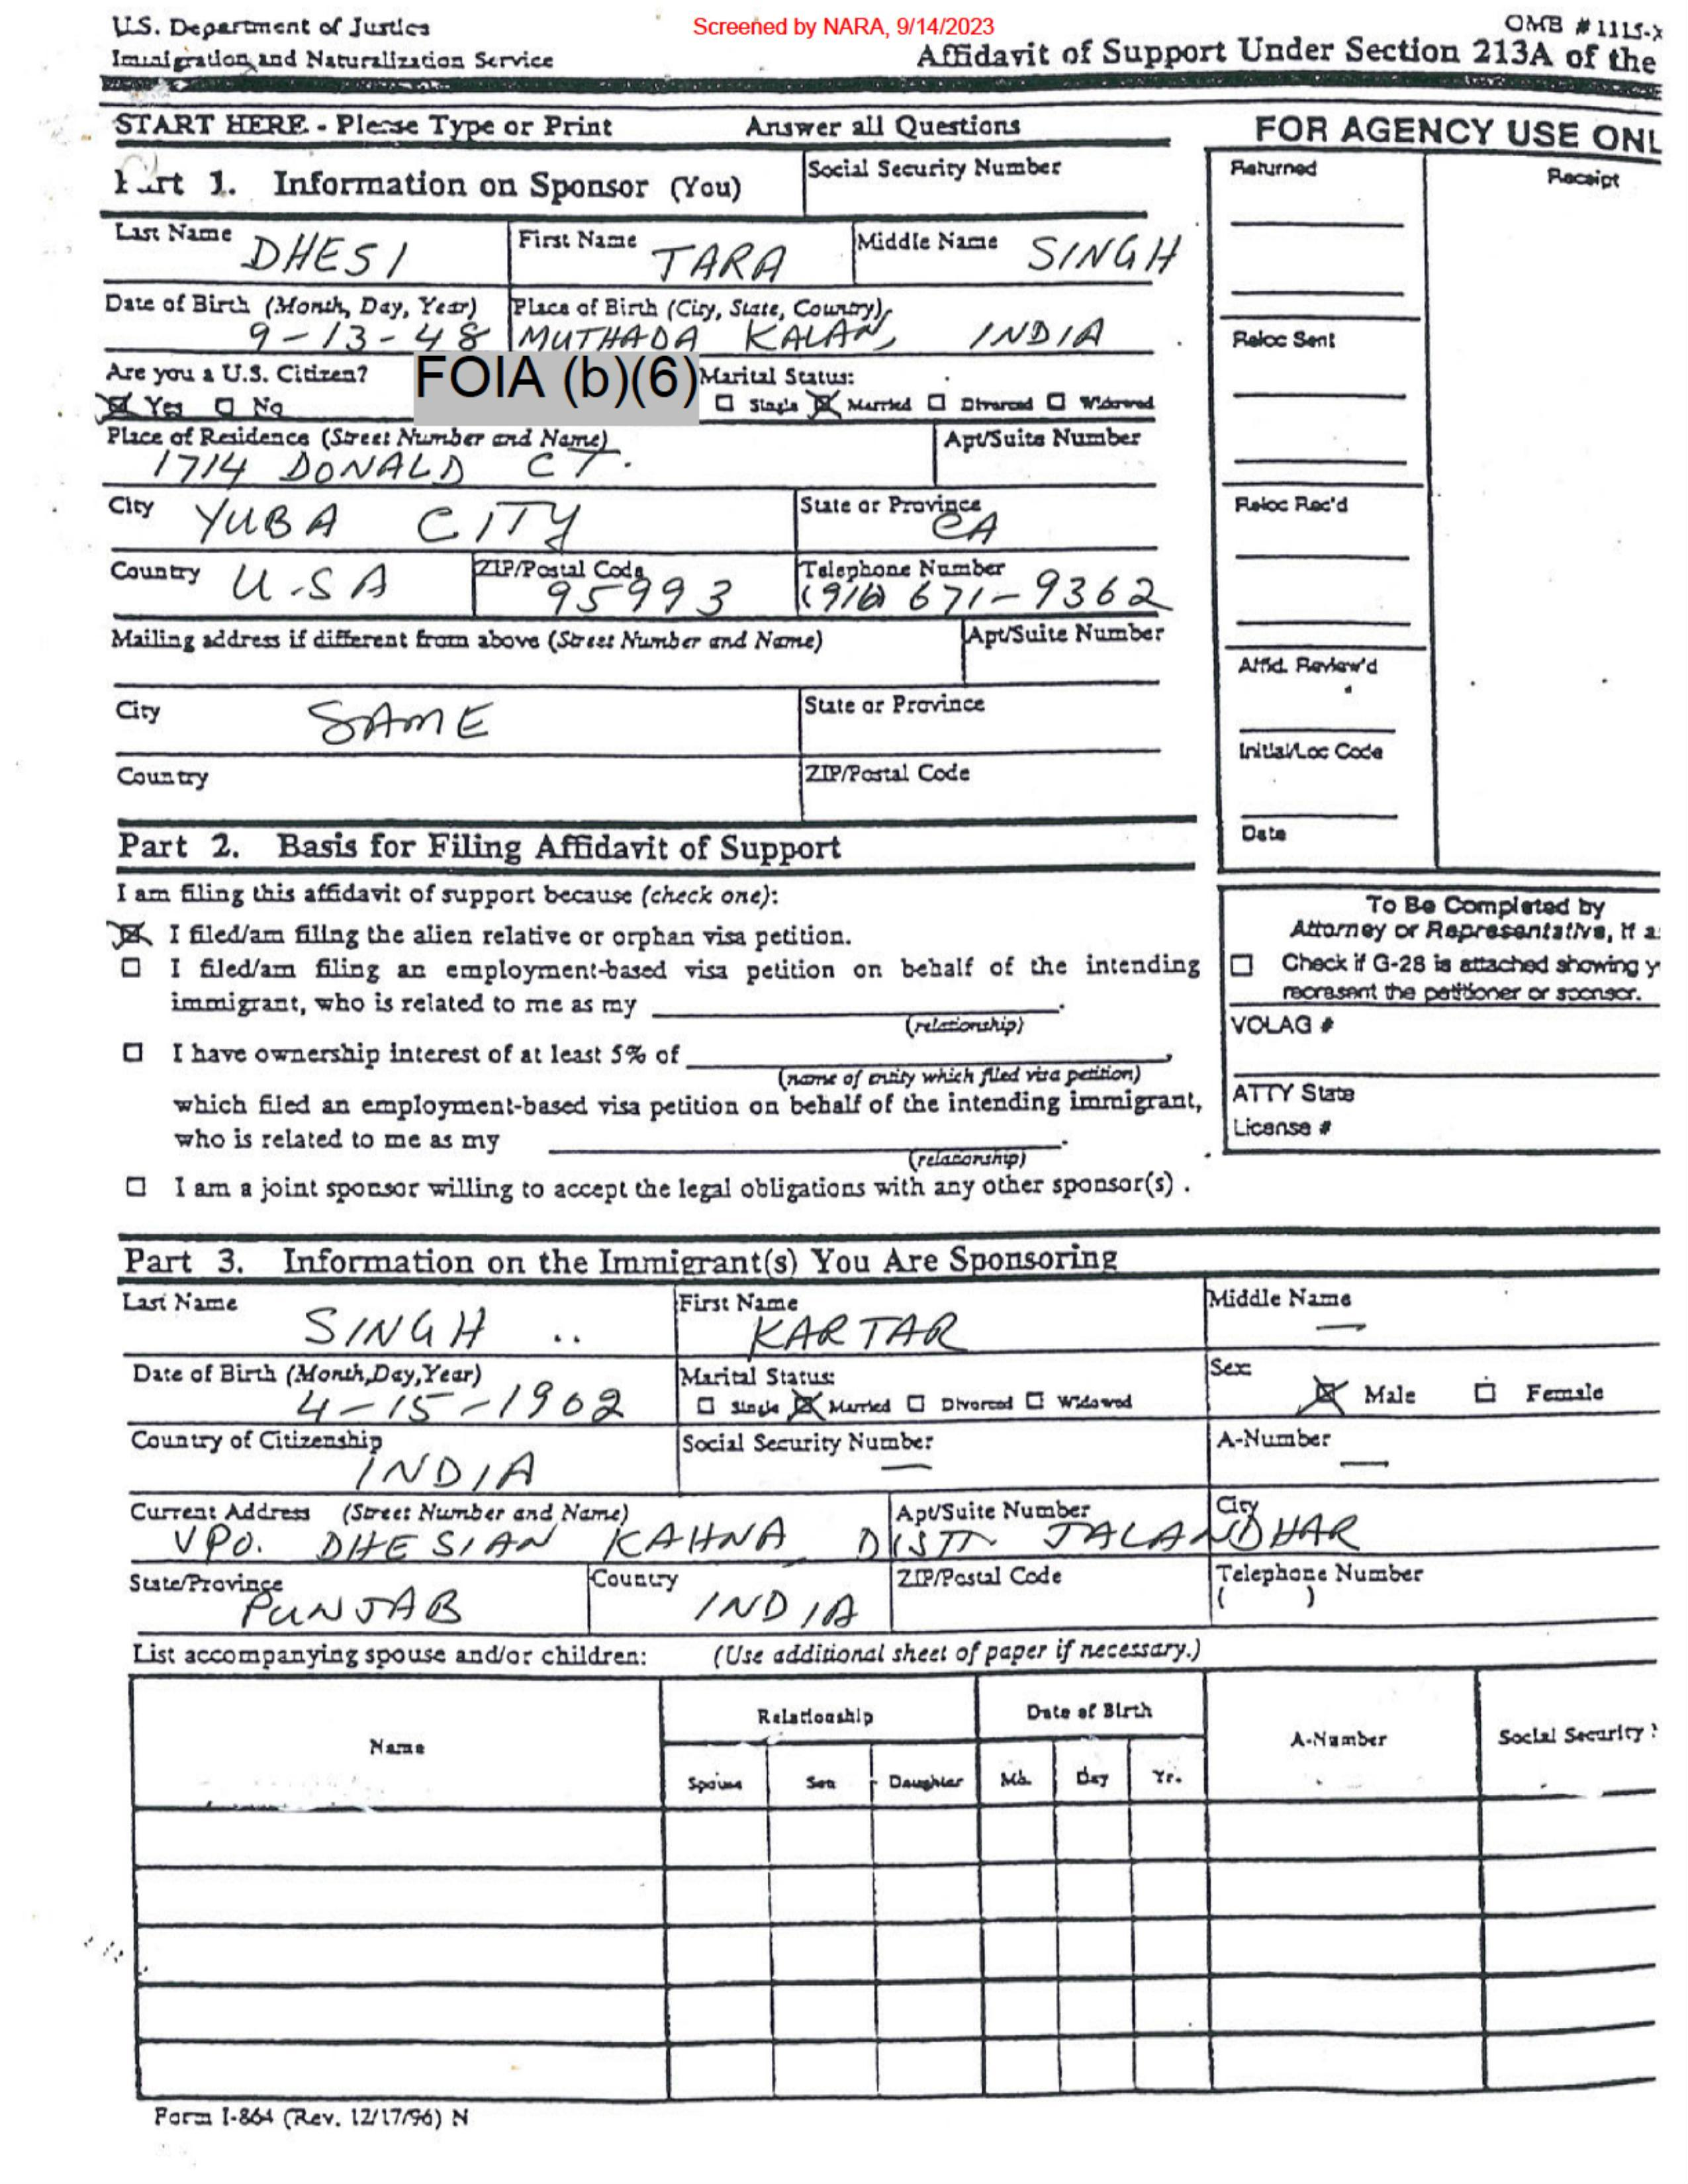 U.S. Department of Justice
Immigration and Naturalization Service
Screened by NARA, 9/14/2023
OMB # 1115-
Affidavit of Support Under Section 213A of the
START HERE - Please Type or Print Answer all Questions
FOR AGENCY USE ONL
Part 1. Information on Sponsor (You)
Social Security Number
Last Name DHESI First Name TARA Middle Name SINGH
Date of Birth (Month, Day, Year) Place of Birth (City, State, Country)
9-13-48 MUTHADA KALAN, INDIA
Are you a U.S. Citizen? FOIA (b)(6) Marital Status:
Yes No Single Married Divorced Widowed
Place of Residence (Street Number and Name) Apt/Suite Number
1714 DONALD CT.
City YUBA CITY State or Province CA
Country U.S.A ZIP/Postal Code 95993 Telephone Number (916) 671-9362
Mailing address if different from above (Street Number and Name) Apt/Suite Number
City SAME State or Province
Country ZIP/Postal Code
Returned
Receipt
Reloc Sent
Reloc Rec'd
Affid. Review'd
Initial/Loc Code
Date
Part 2. Basis for Filing Affidavit of Support
I am filing this affidavit of support because (check one):
I filed/am filing the alien relative or orphan visa petition.
I filed/am filing an employment-based visa petition on behalf of the intending
immigrant, who is related to me as my
(relationship)
I have ownership interest of at least 5% of
(name of entity which filed visa petition)
which filed an employment-based visa petition on behalf of the intending immigrant,
who is related to me as my
(relationship)
I am a joint sponsor willing to accept the legal obligations with any other sponsor(s) .
To Be Completed by
Attorney or Representative, if a
Check if G-28 is attached showing y
represent the petitioner or sponsor.
VOLAG #
ATTY State
License #
Part 3. Information on the Immigrant(s) You Are Sponsoring
Last Name SINGH First Name KARTAR Middle Name —
Date of Birth (Month,Day,Year) Marital Status: Sex
4-15-1902 Single Married Divorced Widowed Male Female
Country of Citizenship INDIA Social Security Number — A-Number —
Current Address (Street Number and Name) Apt/Suite Number City
VPO. DHESIAN KAHNA DISTT JALANDHAR
State/Province PUNJAB Country INDIA ZIP/Postal Code Telephone Number ( )
List accompanying spouse and/or children: (Use additional sheet of paper if necessary.)
Name Relationship Date of Birth A-Number Social Security
Spouse Son Daughter Mo. Day Yr.
Form I-864 (Rev. 12/17/96) N